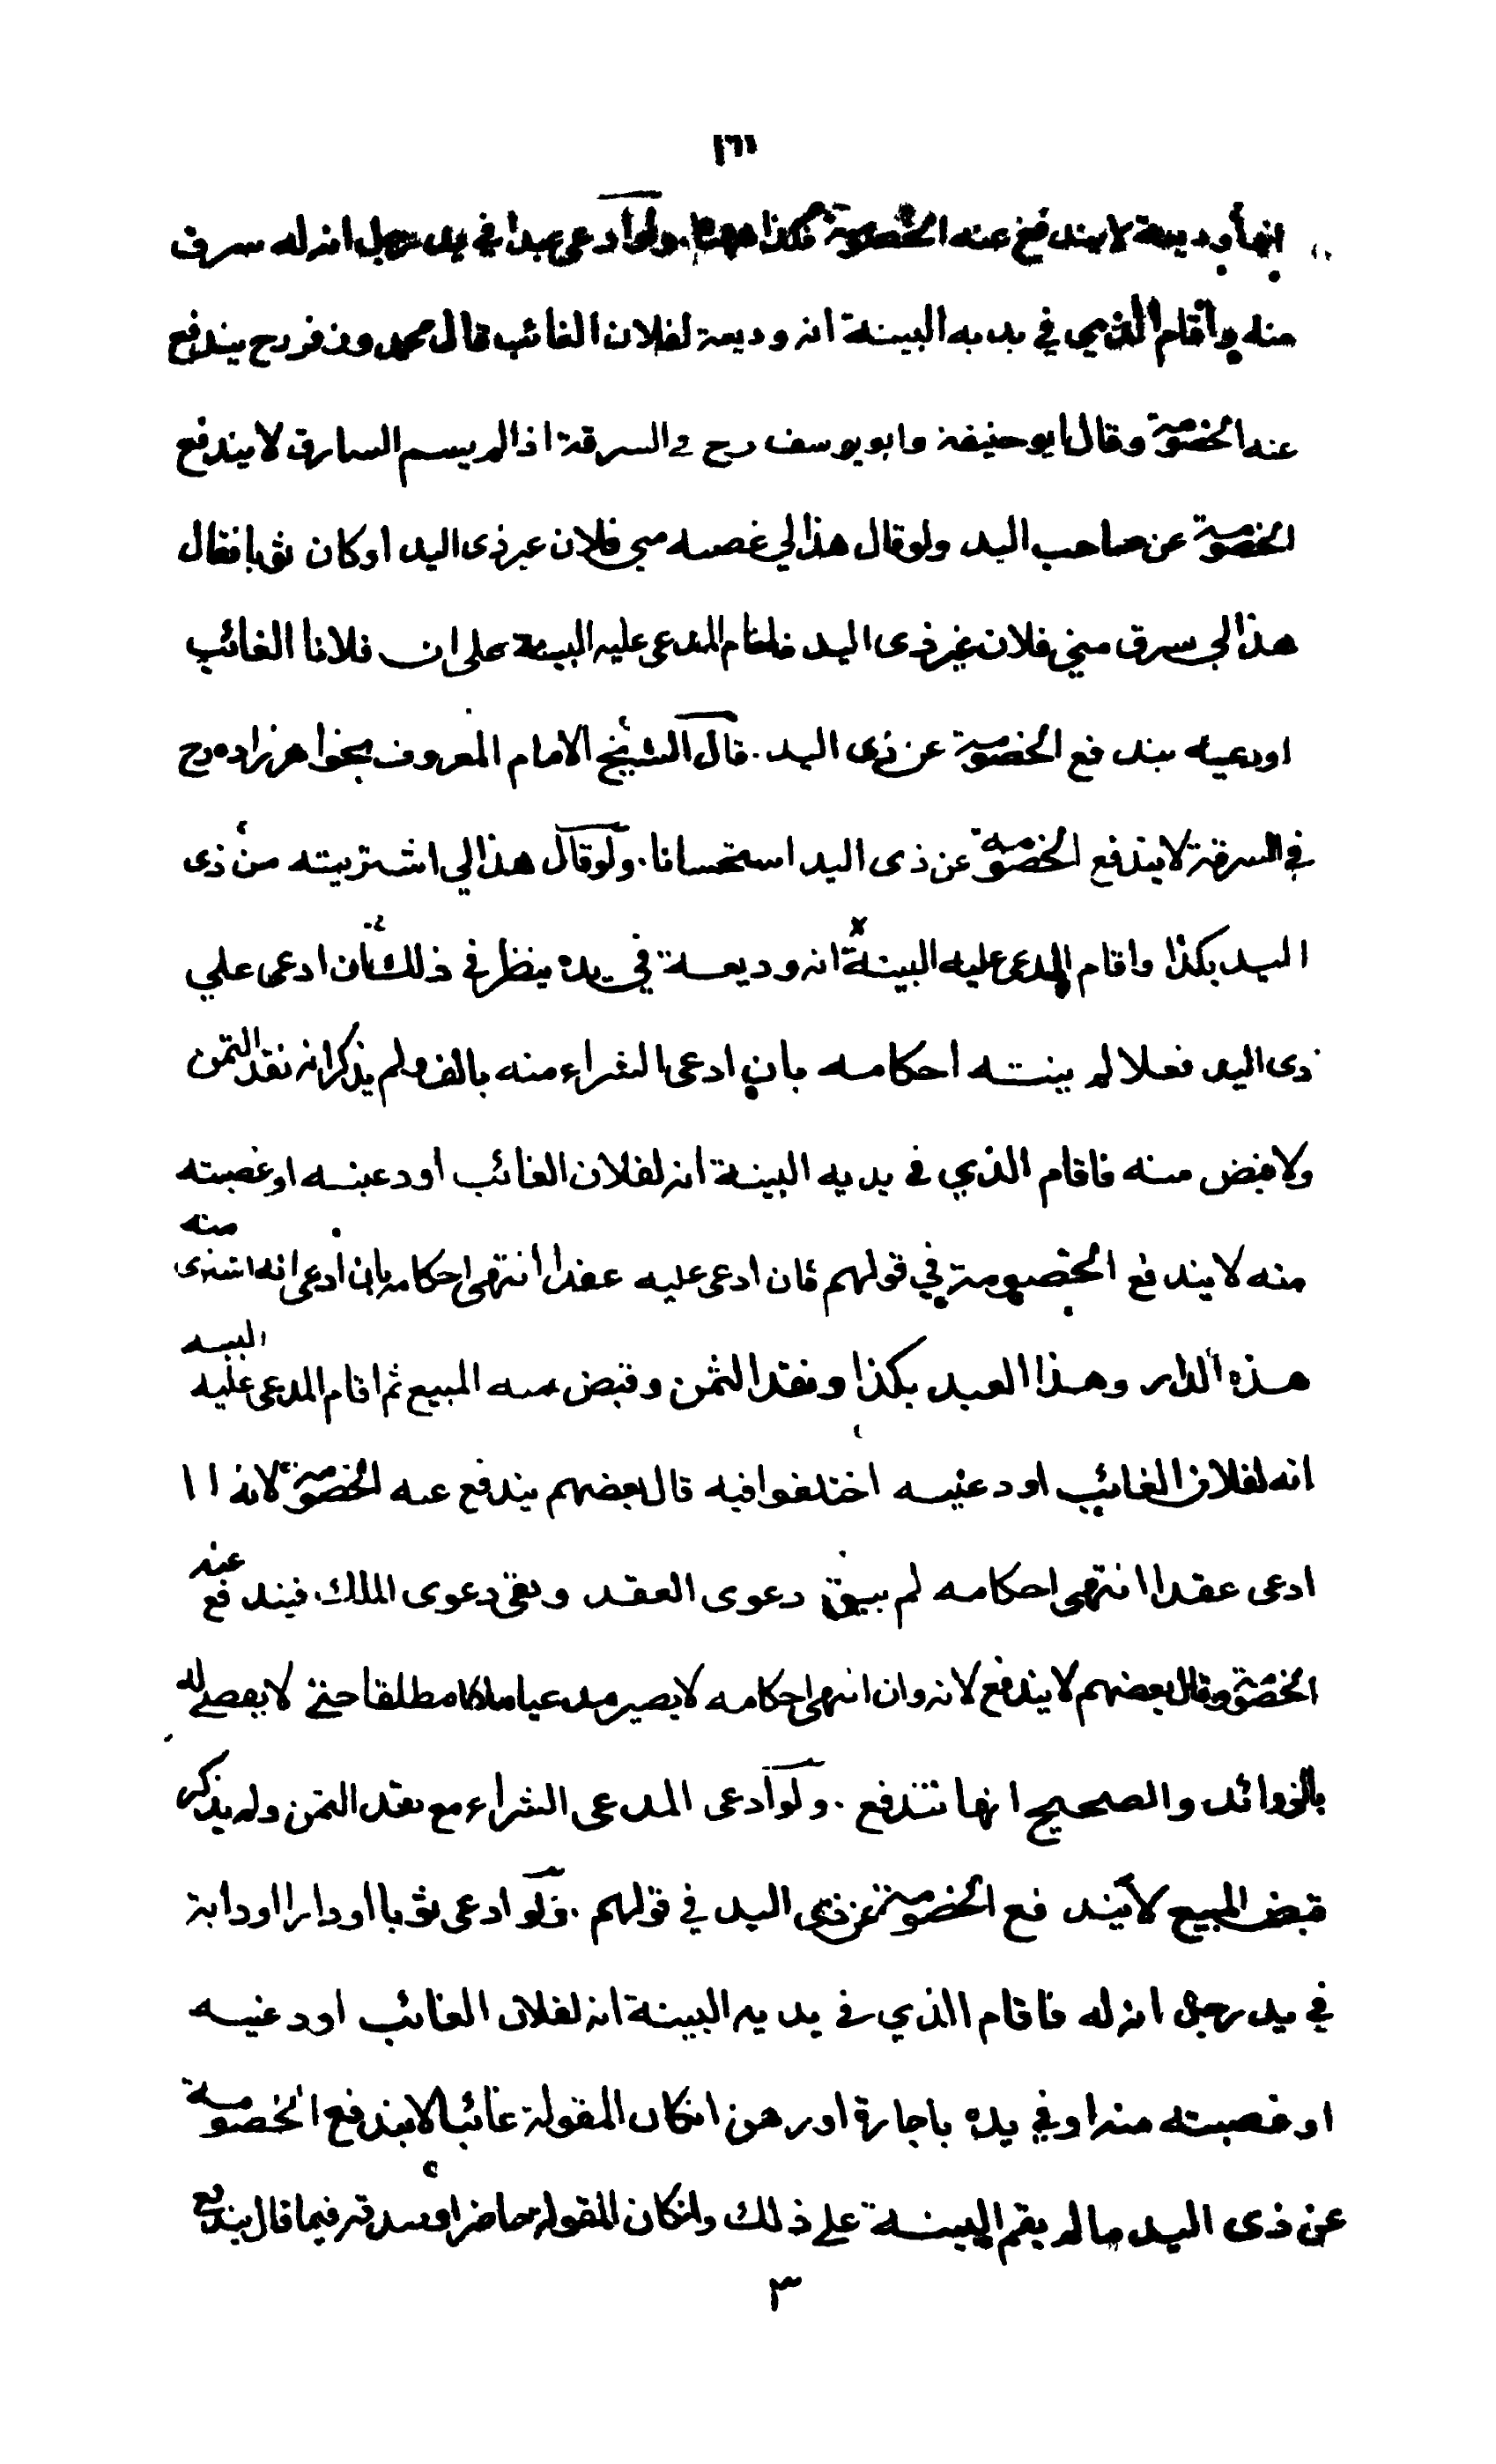 ١٦١
انها وديعة لا يندفع عنه الخصومة فكذا ههنا. ولو ادعى عبدا في يد رجل انه له سرق
منه واقام الذي في يديه البينة انه وديعة لفلان الغائب قال محمد وزفر رح يندفع
عنه الخصومة وقال ابو حنيفة وابو يوسف رح في السرقة اذا لم يسم السارق لا يندفع
الخصومة عن صاحب اليد ولو قال هذا لي غصبه مني فلان غير ذى اليد او كان ثوبا فقال
هذا لي سرق مني فلان غير ذى اليد فاقام المدعى عليه البينة على ان فلانا الغائب
اودعينه يندفع الخصومة عن ذى اليد. قال الشيخ الامام المعروف بخواهرزاده رح
في السرقة لا يندفع الخصومة عن ذى اليد استحسانا. ولو قال هذا لي اشتريته من ذى
اليد بكذا واقام المدعى عليه البينة انه وديعة في يده ينظر في ذلك ان ادعى علي
ذى اليد فعلا لم ينته احكامه بان ادعى الشراء منه بالف ولم يذكر انه نقد الثمن
ولا قبض منه فاقام الذي في يديه البينة انه لفلان الغائب اودعنيه او غصبته
منه لا يندفع الخصومة في قولهم فان ادعى عليه عقدا انتهى احكامه بان ادعى انه اشترى منه
هذه الدار وهذا العبد بكذا ونقد الثمن وقبض منه المبيع ثم اقام المدعى عليه البينه
انه لفلان الغائب اودعنيه اختلفوا فيه قال بعضهم يندفع عنه الخصومة لانه ا ا
ادعى عقدا انتهى احكامه لم يبق دعوى العقد وبقي دعوى الملك فيندفع عنه
الخصومة وقال بعضهم لا يندفع لانه وان انتهى احكامه لا يصير مدعيا ملكا مطلقا حتى لا يقضى له
بالزوائد والصحيح انها تندفع. ولو ادعى المدعى الشراء مع نقد الثمن ولم يذكر
قبض المبيع لا يندفع الخصومة عن ذى اليد في قولهم. ولو ادعى ثوبا او دارا او دابة
في يد رجل انه له فاقام الذي في يديه البينة انه لفلان الغائب اودعنيه
او غصبته منه او في يده باجارة او رهن انكان المقوله غائبا لا يندفع الخصومة
عن ذى اليد مالم يقم البينة على ذلك وانكان المقوله حاضرا وصدقه فيما قال يندفع
٣